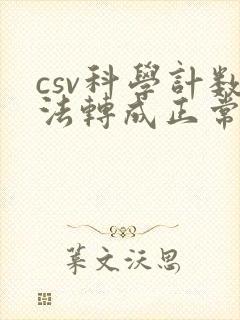 csv科學計數
法轉成正常
葉文沃思